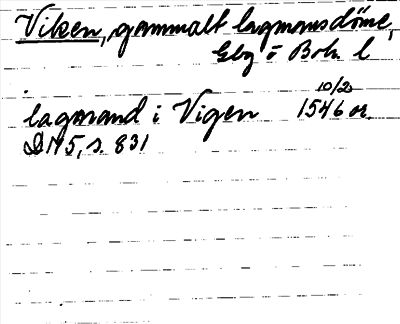 Viken, gammalt lagmansdöme,
Gbg o Boh l
10/2
lagmand i Vigen 1546 or.
DN 5, s. 831